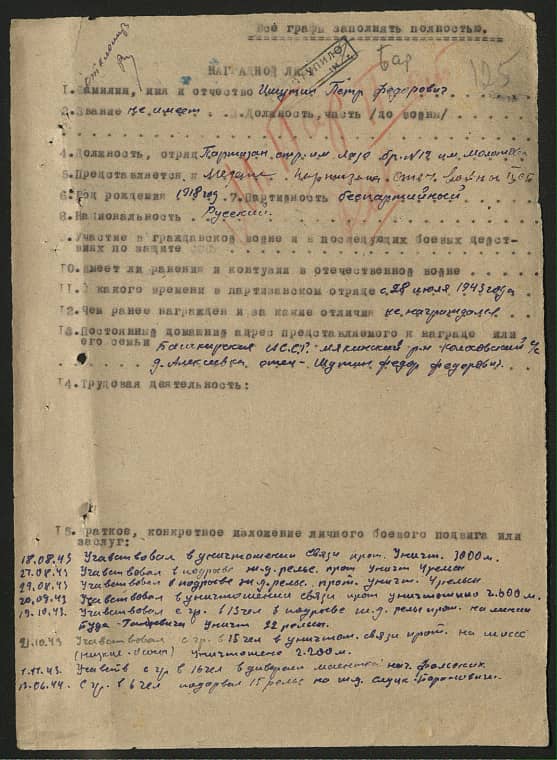 Все графы заполнять полностью.
Бар
125
НАГРАДНОЙ ЛИ
1. Фамилия, имя и отчество Ишутин Петр Федорович
2. Звание не имеет 3. Должность, часть /до войны/
4. Должность, отряд Партизан, отр. им Лазо бр. №12 им. Молотова
5. Представляется к Медали Партизана Отеч. войны II ст
6. Год рождения 1918 год. 7. Партивность беспартийный
8. Национальность Русский.
9. Участие в гражданской войне и в последующих боевых дейст-
виях по защите СССР
10. Имеет ли ранения и контузии в отечественной войне
11. С какого времени в партизанском отряде с 28 июля 1943 года
12. Чем ранее награжден и за какие отличия не награждался
13. Постоянный домашний адрес представляемого к награде или
его семьи Башкирская АССР. Мякинский р-н с/с
д. Алексеевка отец - Шутин Федор Федорович.
14. Трудовая деятельность:
15. Краткое, конкретное изложение личного боевого подвига или
заслуг:
18.08.43 Учавствовал в уничтожении связи прот. Уничт. 3000 м.
27.08.43 Учавствовал в подрыве ж.д. рельс. прот уничт 4 рельсы
29.08.43 Учавствовал в подрыве ж.д. рельс. прот. уничт. 4 рельсы
20.09.43 Учавствовал в уничтожении связи прот уничтожено 2.600 м.
19.10.43. Учавствовал с гр. в 13 чел в подрыве ж.д. рельс прот. на линии
Буда- Уничт 22 рельсы.
21.10.43 Учавствовал с гр. в 15 чел в уничтож. связи прот. на шоссе
уничтожено 2.200 м.
1.11.43. Учавств с гр в 16 чел в диверсии
13.06.44. С гр. в 6 чел подорвал 15 рельс на ж.д. Слуцк-Баранович.